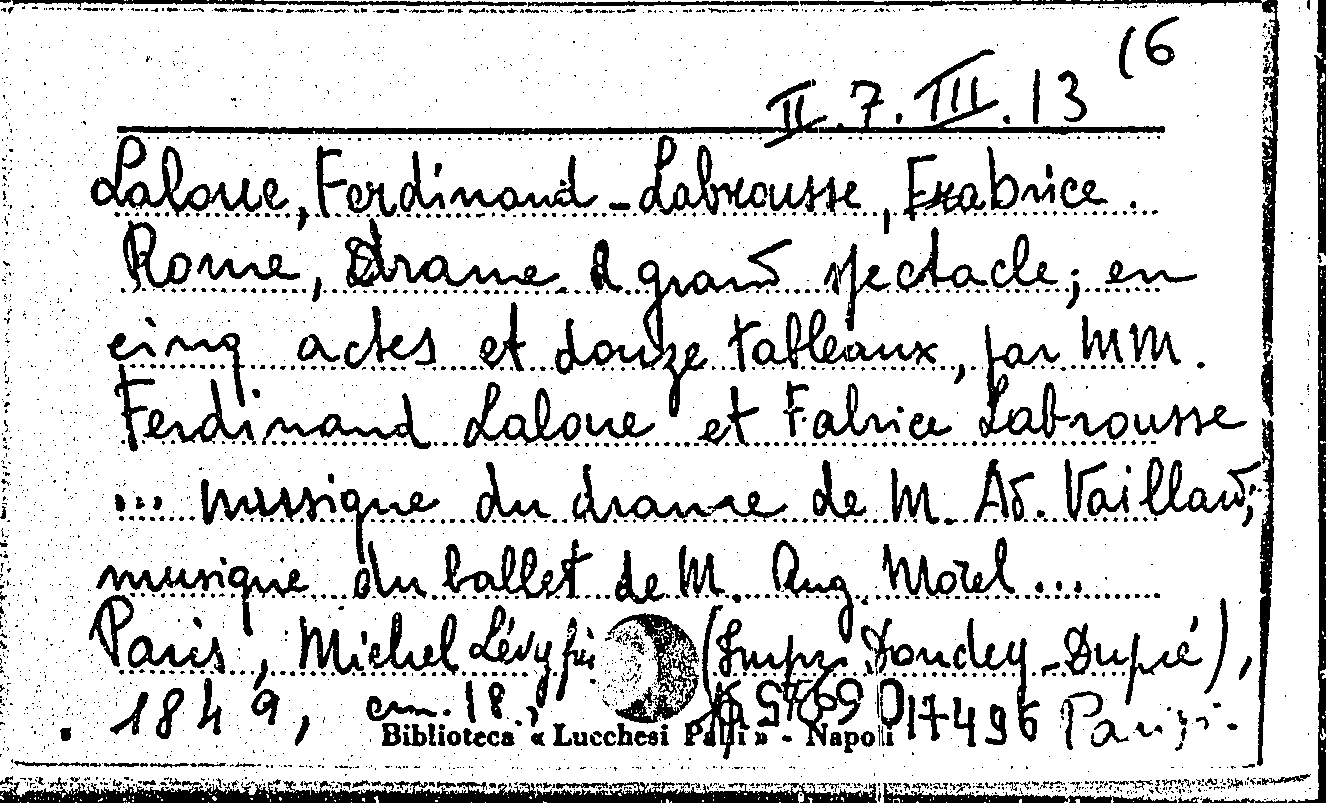 II.7.III.13 (6
Laloue, Ferdinand - Labrousse, Fabrice.
Rome, Drame à grand spectacle; en
cinq actes et douze tableaux, par MM.
Ferdinand Laloue et Fabrice Labrousse
... mussique du drame de M. Ad. Vaillard;
musique du ballet de M. Aug. Morel...
Paris, Michel Lévy (Impr. Dondey-Dupré),
1849, cm. 18., 17496
Biblioteca « Lucchesi Palli » - Napoli